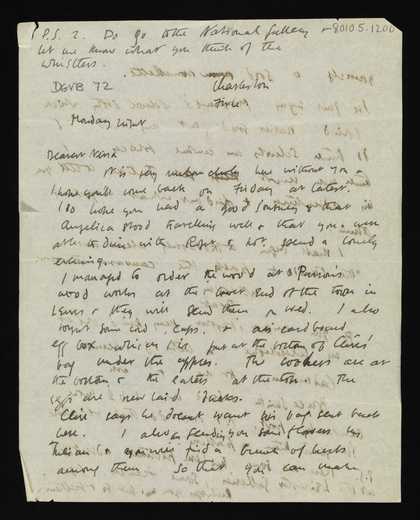 P.S. 2. Do go to the National Gallery &
let me know what you think of the
Whistlers.
8010.5.1200
DGVB 72
Charleston
Firle
Monday night
Dearest Nessa
It is very here without you &
I hope you'll come back on Friday at latest.
I do hope you had a good journey & that
Angelica stood travelling well & that you were
able to dine with Roger & not spend a lonely
evening.
I managed to order the wood at Parsons
wood works at the lower end of the town in
Lewes & they will send them on wed. I also
bought some and cups. & a cardboard
egg box which I put at the bottom of Clive's
bag under the apples. The cookers are at
the bottom & the eaters at the top. The
eggs are new laid
Clive says he doesn't want his bag sent back
here. I also sending you some flowers by
Julian & you will find a bunch of herbs
among them so that you can make